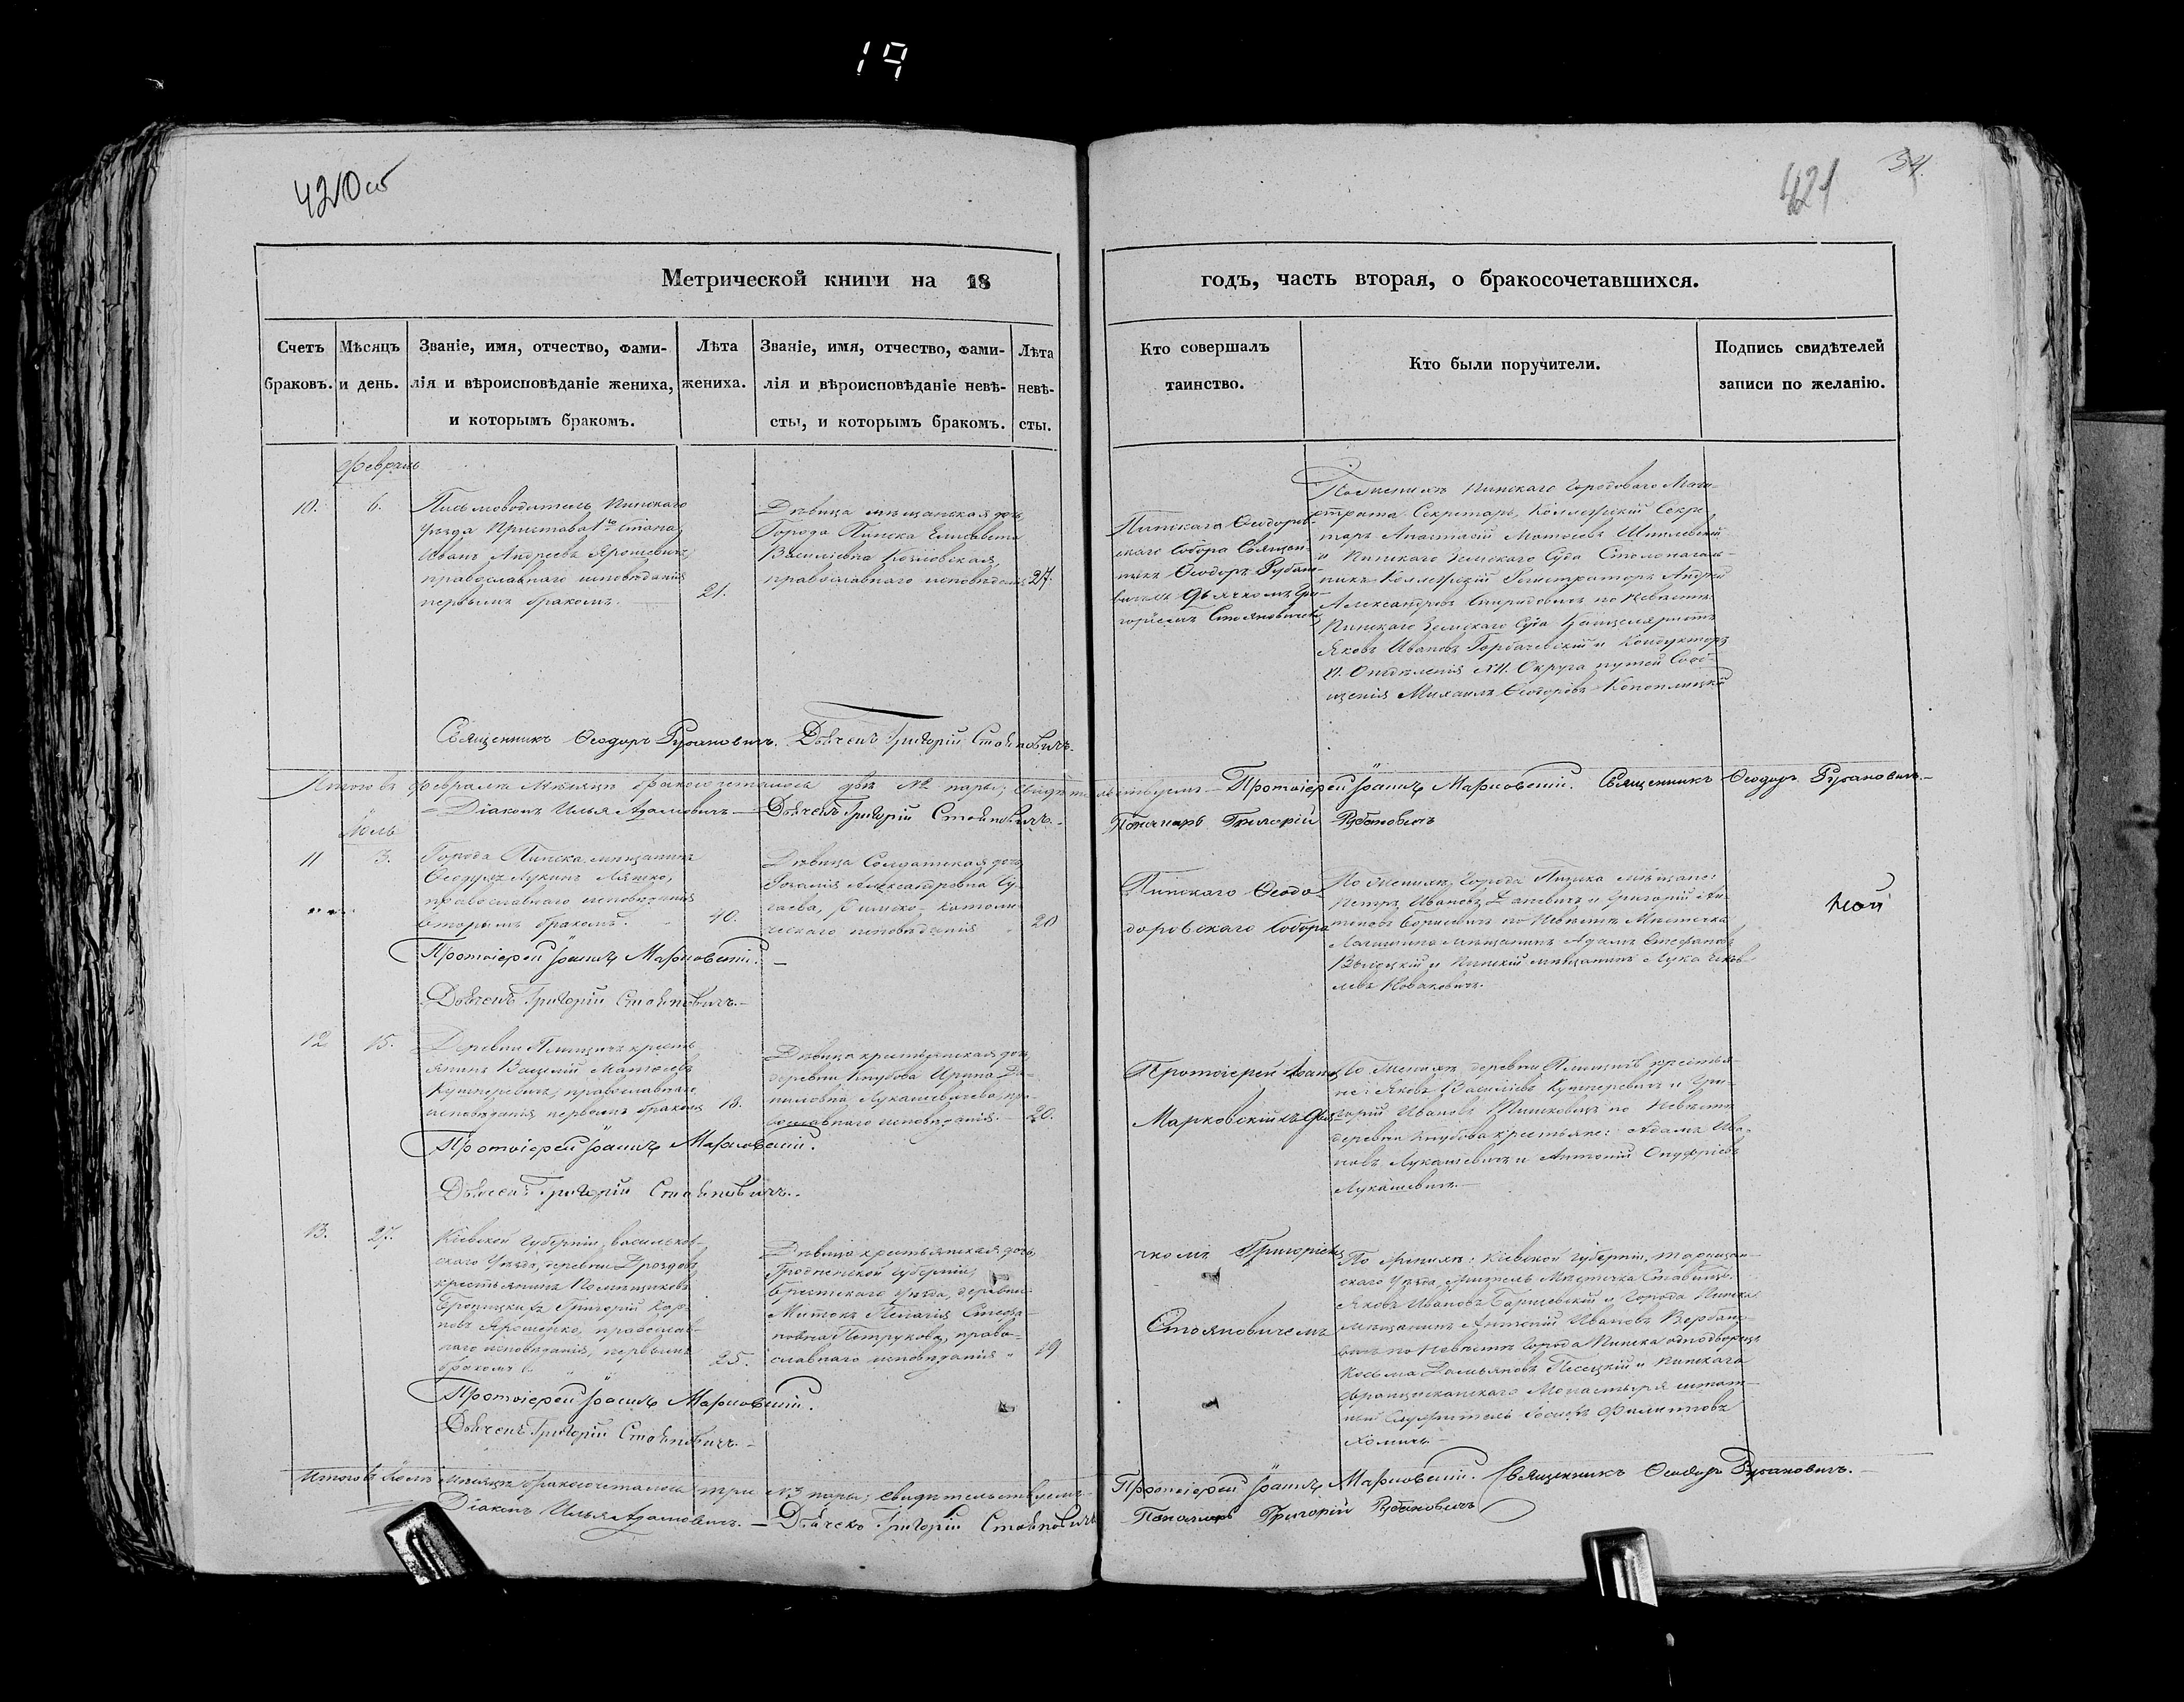 19
420 об
421
54.
Метрической книги на 18
годъ, часть вторая, о бракосочетавшихся.
Счетъ браковъ.
Мѣсяцъ и день.
Званіе, имя, отчество, фами-
лія и вѣроисповѣданіе жениха,
и которымъ бракомъ.
Лѣта
жениха.
Званіе, имя, отчество, фами-
лія и вѣроисповѣданіе невѣ-
сты, и которымъ бракомъ.
Лѣта
невѣ-
сты.
Кто совершалъ
таинство.
Кто были поручители.
Подпись свидѣтелей
записи по желанію.
Февраль
10.
6.
Письмоводитель Пинскаго
уѣзда Пристава 1го стана
Иванъ Андреевъ Ярошевичъ
православнаго исповѣданія
первымъ бракомъ.
21.
Дѣвица мѣщанская дочь
Города Пинска Елисавета
Василіевна Козловская,
православнаго исповѣданія
27.
Пинскаго Ѳеодоров-
скаго Собора Священ-
никъ Ѳеодоръ Рубано-
вичъ съ Дьячкомъ Гри-
горіемъ Стояновичемъ
По женихѣ Пинскаго Городоваго Маги-
страта Секретарь, Коллежскій Секре-
тарь Анастасій Матѳеевъ
и Пинскаго Земскаго Суда Столоначаль-
никъ Коллежскій Регистраторъ Андрей
Александровъ Спиридовичъ по Невѣстѣ:
Пинскаго Земскаго Суда Канцеляристъ
Яковъ Ивановъ Горбачевскій и Кондукторъ
Отдѣленія XII. Округа путей Сооб-
щенія Михаилъ Ѳеодоровъ
Священникъ Ѳеодоръ Рубановичъ. Дьячекъ Григорій Стояновичъ.
Итого въ Февралѣ Мѣсяцѣ бракосочеталось двѣ №2 пары; свидѣтельствуемъ – Протоіерей Іоаннъ Марковскій. Священникъ Ѳеодоръ Рубановичъ.
Діаконъ Илья Адамовичъ. – Дьячекъ Григорій Стояновичъ. Пономарь Григорій Рубановичъ
Іюль
11
3.
Города Пинска мѣщанинъ
Лукинъ Ляшко,
православнаго исповѣданія
вторымъ бракомъ.
40.
Дѣвица Солдатская дочь
Розалія Александровна
Римско-католи-
ческаго исповѣданія
20
Пинскаго Ѳеодо-
доровскаго Собора
По женихѣ Города Пинска мѣщане:
Петръ Ивановъ и Григорій Ан-
тоновъ Борисевичъ по Невѣстѣ Мѣстечка
Логишина мѣщанинъ Адамъ Стефановъ
Высоцкій и Пинскій мѣщанинъ Лука
Протоіерей Іоаннъ Марковскій.
Дьячекъ Григорій Стояновичъ.
12
15.
Деревни кресть-
янинъ Василій Матѳеевъ
православнаго
исповѣданія первымъ бракомъ
18.
Дѣвица крестьянская дочь
деревни Кнубова Ирина Да-
ниловна Лукашевичева, пра-
вославнаго исповѣданія.
20.
Протоіерей Іоаннъ
Марковскій съ Дья-
По женихѣ деревни крестья-
не: Яковъ Василіевъ и Гри-
горій Ивановъ по Невѣстѣ
деревни Кнубова крестьяне: Адамъ Ива-
новъ Лукашевичъ и Антоній Онуфріевъ
Лукашевичъ.
Протоіерей Іоаннъ Марковскій.
Дьячекъ Григорій Стояновичъ.
13.
27.
Кіевской Губерніи, Васильков-
скаго Уѣзда, деревни Дроздовъ,
крестьянинъ Помѣщиковъ
Григорій Кар-
повъ Ярошенко, православ-
наго исповѣданія, первымъ
бракомъ.
25.
Дѣвица крестьянская дочь
Гродненской Губерніи,
Брестскаго Уѣзда, деревни
Пелагія Стефа-
новна Петрукова, право-
славнаго исповѣданія
19
чкомъ Григоріемъ
Стояновичемъ
По Женихѣ: Кіевской Губерніи, Таращан-
скаго Уѣзда, житель Мѣстечка Ставищъ
Яковъ Ивановъ и Города Пинска
мѣщанинъ Антоній Ивановъ Вербано-
вичъ по Невѣстѣ Города Пинска однодворецъ
Косьма Дамьяновъ Песецкій и Пинскаго
Францисканскаго Монастыря штат-
ный служитель Іосифъ Филипповъ
Хомичъ.
Протоіерей Іоаннъ Марковскій.
Дьячекъ Григорій Стояновичъ.
Итого въ Іюлѣ мѣсяцѣ бракосочеталось три №3 пары; свидѣтельствуемъ Протоіерей Іоаннъ Марковскій. Священникъ Ѳеодоръ Рубановичъ.
Діаконъ Илья Адамовичъ. – Дьячекъ Григорій Стояновичъ Пономарь Григорій Рубановичъ